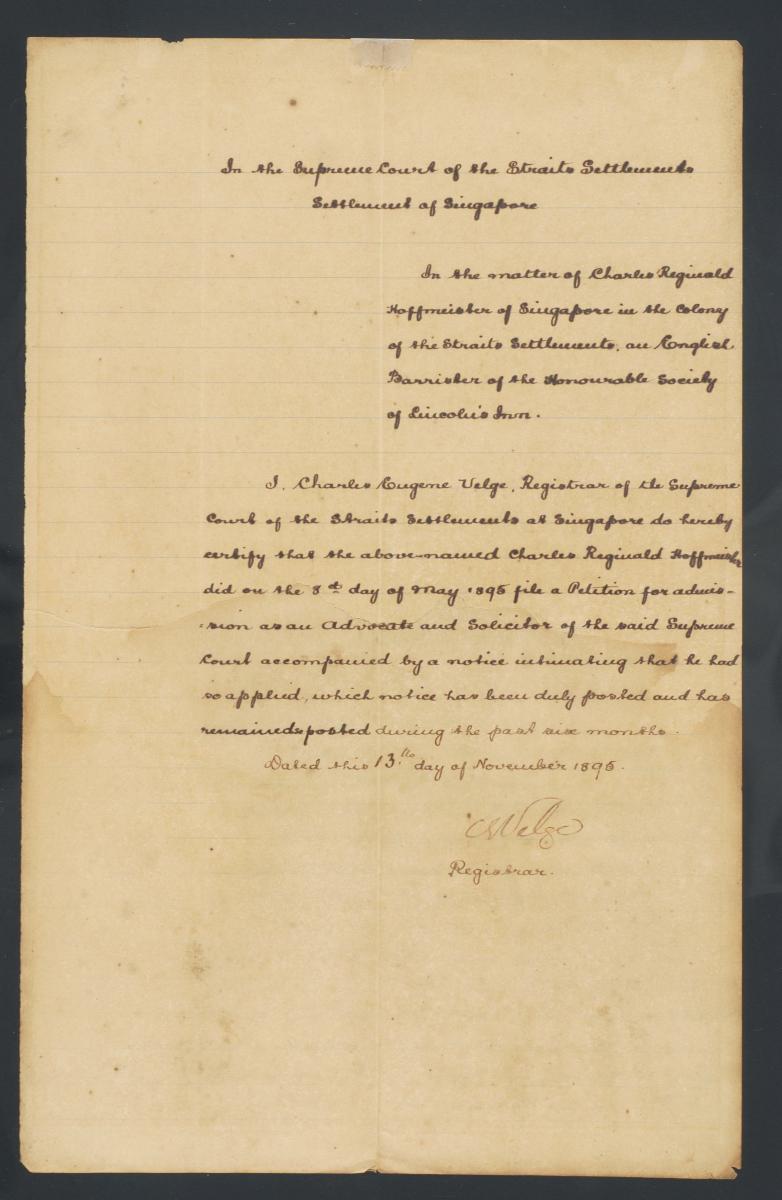 In the Supreme Court of the Straits Settlements
Settlement of Singapore
In the matter of Charles Reginald
Hoffmeister of Singapore in the Colony
of the Straits Settlements, an English
Barrister of the Honourable Society
of Lincoln's Inn.
I, Charles Eugene Velge, Registrar of the Supreme
Court of the Straits Settlements at Singapore do hereby
certify that the above-named Charles Reginald Hoffmeister
did on the 8th day of May 1895 file a Petition for admis-
-sion as an Advocate and Solicitor of the said Supreme
Court accompanied by a notice intimating that he had
so applied, which notice has been duly posted and has
remained so posted during the past six months.
Dated this 13th day of November 1895.
CEVelge
Registrar.